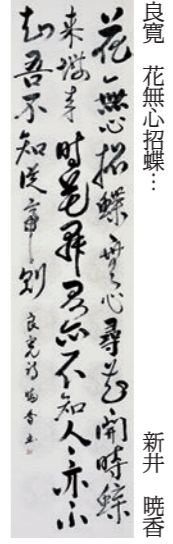 良寛　花無心招蝶…　新井　暁香
花無心招蝶々無心尋花開時蝶
来蝶来時花開吾亦不知人々亦不
知吾不知従帝則　良寛詩　暁香書